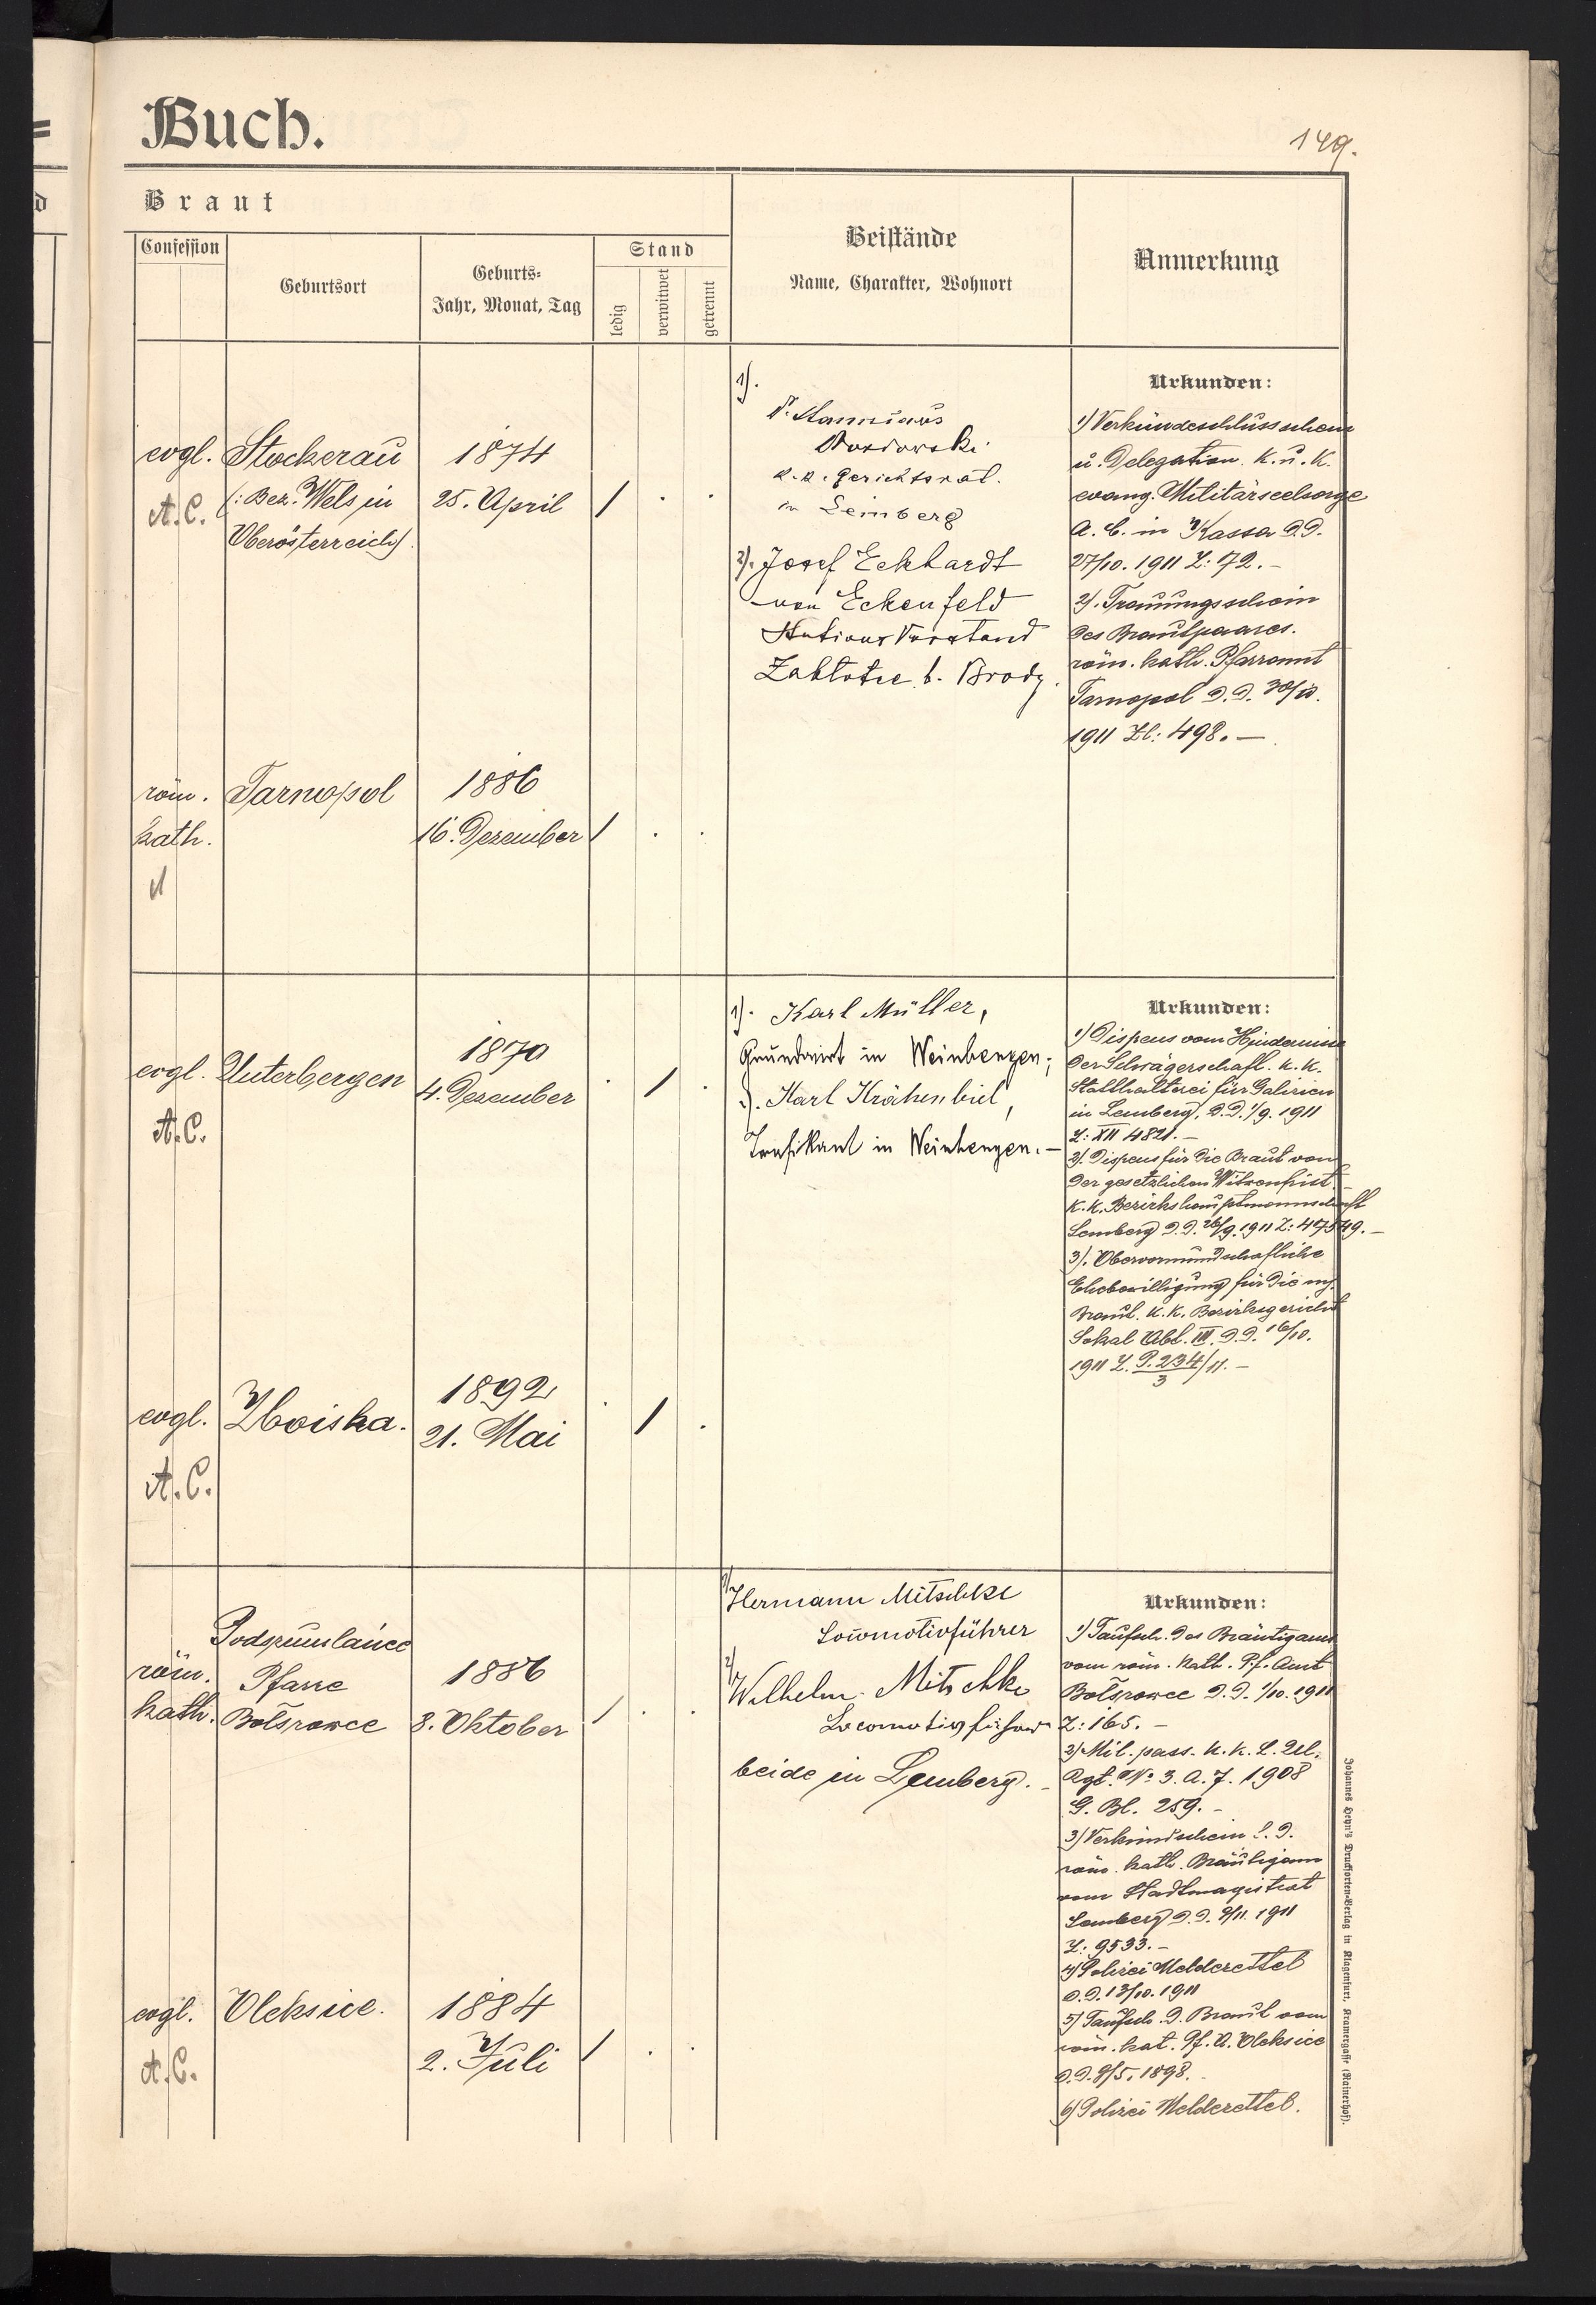 Buch.
149.
Braut
Confession
Geburtsort
Geburts-
Jahr, Monat, Tag
Stand
ledig
verwitwet
getrennt
Beistände
Name, Charakter, Wohnort
Anmerkung
evgl.
A.C.
Stockerau
(: Bez. Wels in
Oberösterreich)
1874
25. April
1 . .
1).
k.k. Gerichtsrat.
in Lemberg
2). Josef Eckhardt
von Eckenfeld
Stations Vorstand
Zabłotce b. Brody.
Urkunden:
1) Verkündschlussschein
u. Delegation. k.u.k.
evang. Militärseelsorge
A.C. in Kassa d.d.
27/10. 1911 Z: 72.-
2). Trauungsschein
des Brautpaares.
röm. kath. Pfarramt
Tarnopol d.d.
1911 Zl: 498.—
röm.
kath.
Tarnopol
1886
16. Dezember
1 . .
evgl.
A.C.
Unterbergen
1870
4. Dezember
. 1 .
1). Karl Müller,
Grundwirt in Weinbergen;
2). Karl Krähenbiel,
Trafikant in Weinbergen.—
Urkunden:
1) Dispens vom Hindernisse
der Schwägerschaft. k.k.
Statthalterei für Galizien
in Lemberg, d.d. 1/9. 1911
Z: XII 4821.-
2). Dispens für die Braut von
der gesetzlichen Witwenfrist.
k.k. Bezirkshauptmannschaft
Lemberg d.d. 26/9. 1911 Z: 47549.-
3). Obervormundschaftliche
Ehebewilligung für die mj.
Braut. k.k. Bezirksgericht
Sokal Abt. III. d.d. 16/10.
1911 Z. P.234/3/11.-
evgl.
A.C.
Zboiska.
1892
21. Mai
. 1 .
röm.
kath.
Pfarre
Bołszowce
1886
8. Oktober
1 . .
1) Hermann Mitschke
Locomotivführer
2) Wilhelm Mitschke
Locomotivführer
beide in Lemberg.-
Urkunden:
1) Taufsch. des Bräutigams
vom röm. kath. Pf. Amt
Bołszowce d.d. 1/10. 1911
Z: 165.-
2) Mil. pass. k.k. L. Ul.
Rgt. No 3. A.J. 1908
G. Bl. 259.-
3) Verkündschein f. d.
röm. kath. Bräutigam
vom Stadtmagistrat
Lemberg d.d. 9/11. 1911
Z: 9533.-
4) Polizei Meldezettel
d.d. 13/10. 1911
5) Taufsch. d. Braut vom
röm. kat. Pf. A. Oleksice
d.d. 9/5. 1898.-
6) Polizei Meldezettel.
evgl.
A.C.
Oleksice.
1884
2. Juli
1 . .
Johannes Heyn's Drucksorten-Verlag in Klagenfurt, Kramergasse (Rainerhof).